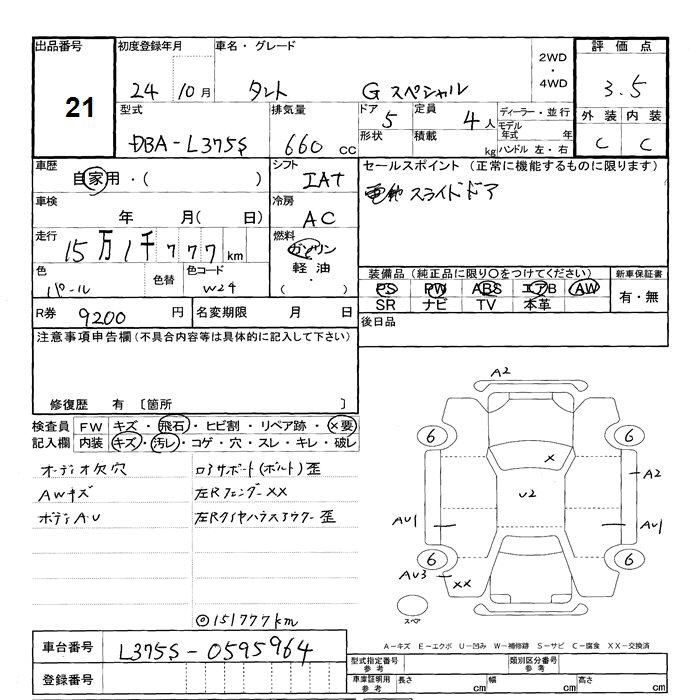 出品番号 初度登録年月 車名・グレード 2WD・4WD 評価点
21 24 10月 タント Gスペシャル 3.5
型式 排気量 ドア 5 定員 4人 ディーラー・並行 外装 内装
DBA-L375S 660cc 形状 積載 kg モデル年式 年 C C
ハンドル 左・右
車歴 自家用・( ) シフト IAT セールスポイント (正常に機能するものに限ります)
車検 年 月( 日) 冷房 AC 電動スライドドア
走行 15万1千777km 燃料 ガソリン 軽油・( )
色 パール 色替 色コード W24
装備品(純正品に限り○をつけてください) 新車保証書
PS PW ABS エアB AW 有・無
SR ナビ TV 本革
R券 9200円 名変期限 月 日 後日品
注意事項申告欄(不具合内容等は具体的に記入して下さい)
修復歴 有 〔箇所 〕
検査員 FW キズ・飛石・ヒビ割・リペア跡・×要
記入欄 内装 キズ・汚レ・コゲ・穴・スレ・キレ・破レ
オーディオ欠穴 ロアサポート(ボルト)歪
AWキズ 左Rフェンダー××
ボディAU 左Rタイヤハウスアウター歪
◎151777km
A2
6 6
×
U2 A2
AU1 AU1
6 6
AU3 ××
スペア
A-キズ E-エクボ U-凹み W-補修跡 S-サビ C-腐食 XX-交換済
車台番号 L375S-0595964
登録番号
型式指定番号 参考 類別区分番号 参考
車庫証明用 参考 長さ cm 幅 cm 高さ cm